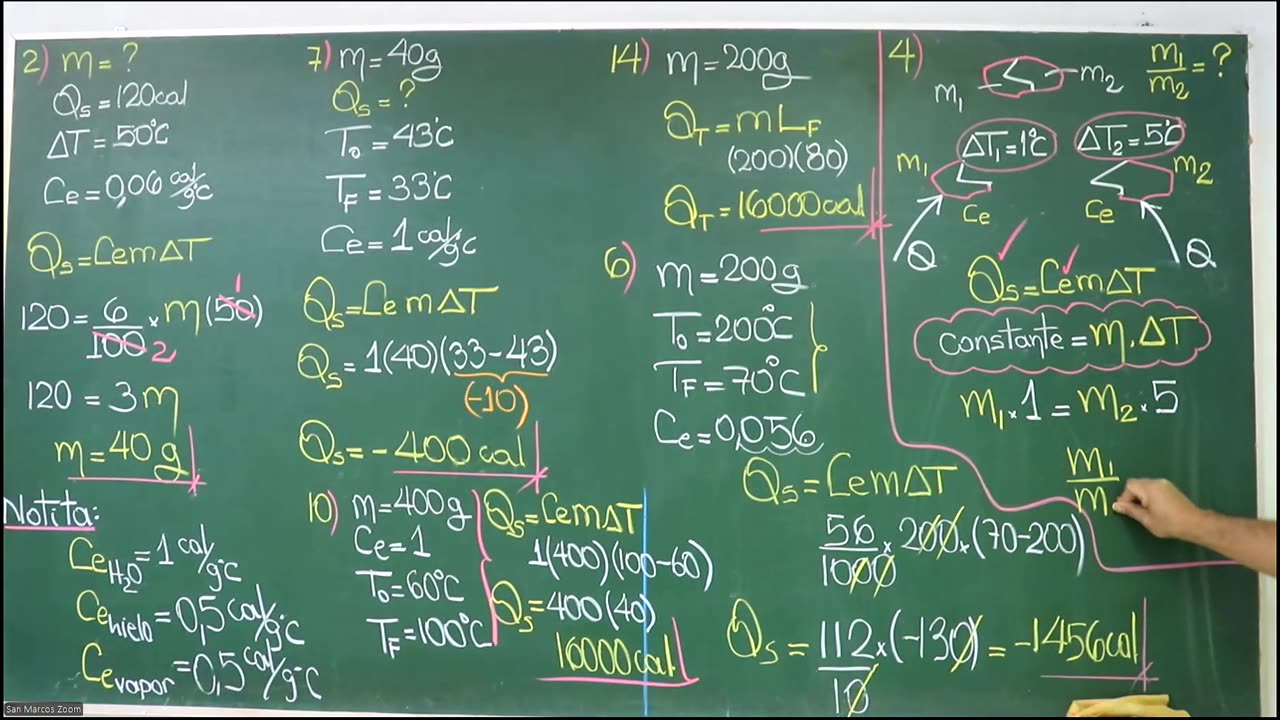 2) m = ?
Qs = 120cal
ΔT = 50°C
Ce = 0,06 cal/g°C
Qs = CemΔT
120 = 6/100 × m (50) 1
2
120 = 3m
m = 40 g
Notita:
Ce H2O = 1 cal/g°C
Ce hielo = 0,5 cal/g°C
Ce vapor = 0,5 cal/g°C
7) m = 40g
Qs = ?
To = 43°C
TF = 33°C
Ce = 1 cal/g°C
Qs = CemΔT
Qs = 1(40)(33-43)
(-10)
Qs = -400 cal
10) m = 400g
Ce = 1
To = 60°C
TF = 100°C
Qs = CemΔT
1(400)(100-60)
Qs = 400(40)
16000cal
14) m = 200g
QT = mLF
(200)(80)
QT = 16000cal
6) m = 200g
To = 200°C
TF = 70°C
Ce = 0,056
Qs = CemΔT
56/1000 × 200 × (70-200)
Qs = 112/10 × (-130) = -1456cal
4) m1/m2 = ?
m1 m2
ΔT1 = 1°C ΔT2 = 5°C
m1 m2
Ce Ce
Q Q
Qs = CemΔT
constante = m.ΔT
m1 × 1 = m2 × 5
m1/m
San Marcos Zoom